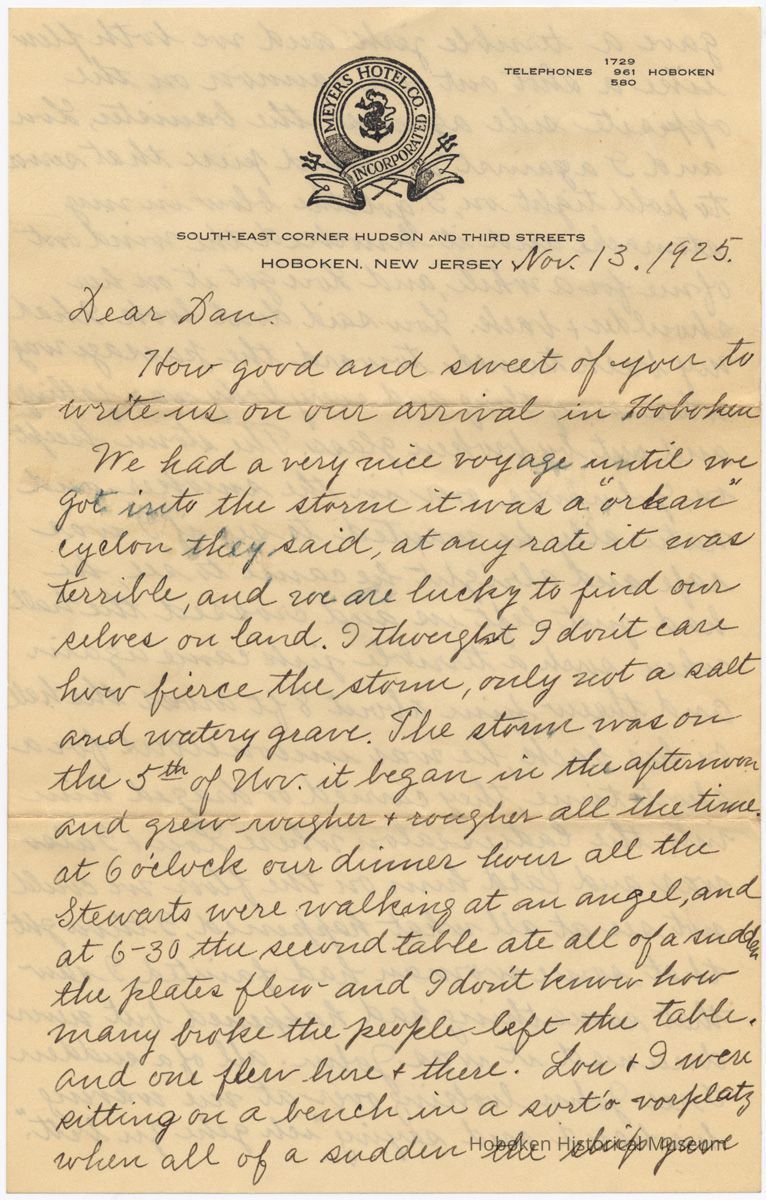 MEYERS HOTEL CO.
INCORPORATED
TELEPHONES 1729 961 580 HOBOKEN
SOUTH-EAST CORNER HUDSON AND THIRD STREETS
HOBOKEN, NEW JERSEY Nov. 13. 1925.
Dear Dan.
How good and sweet of you to
write us on our arrival in Hoboken
We had a very nice voyage until we
got into the storm it was a "orkan"
cyclon they said, at any rate it was
terrible, and we are lucky to find our
selves on land. I thought I don't care
how fierce the storm, only not a salt
and watery grave. The storm was on
the 5th of Nov. it began in the afternoon
and grew rougher + rougher all the time.
at 6 o'clock our dinner hour all the
Stewarts were walking at an angel, and
at 6-30 the second table ate all of a sudden
the plates flew and I don't know how
many broke the people left the table.
and one flew here + there. Lou + I were
sitting on a bench in a sort'o vorplatz
when all of a sudden the ship gave
Hoboken Historical Museum